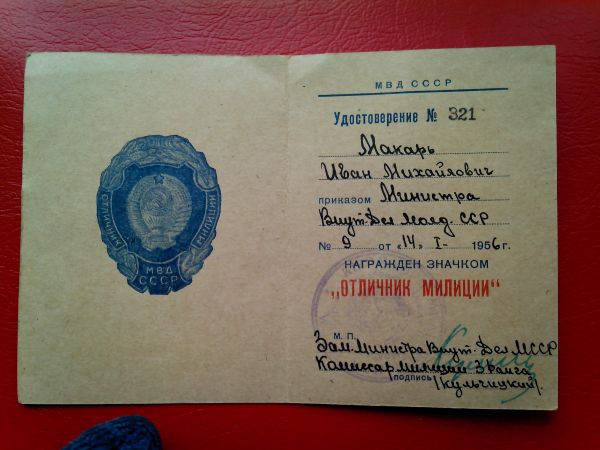 ОТЛИЧНИК МИЛИЦИИ
МВД
СССР
МВД СССР
Удостоверение № 321
Макарь
Иван Михайлович
приказом Министра
Внут. Дел Молд. ССР
№ 9 от «14» I- 1956 г.
НАГРАЖДЕН ЗНАЧКОМ
„ОТЛИЧНИК МИЛИЦИИ“
М. П.
Зам. Министра Внут. Дел МССР
Комиссар милиции 3 ранга
(подпись) (Кульчицкий).